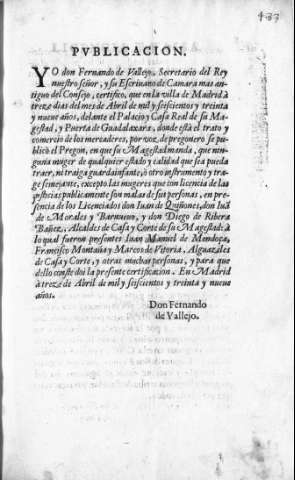 433
PVBLICACION.
YO don Fernando de Vallejo, Secretario del Rey
nuestro señor, y su Escriuano de Camara mas an-
tiguo del Consejo, certifico, que en la villa de Madrid à
treze dias del mes de Abril de mil y seiscientos y treinta
y nueue años, delante el Palacio y Casa Real de su Ma-
gestad, y Puerta de Guadalaxara, donde està el trato y
comercio de los mercaderes, por voz de pregonero se pu-
blicò el Pregon, en que su Magestad manda, que nin-
guna muger de qualquier estado y calidad que sea pueda
traer, ni traiga guardainfante, ò otro instrumento y tra-
ge semejante, excepto las mugeres que con licencia de las
justicias publicamente son malas de sus personas, en pre-
sencia de los Licenciados don Iuan de Quiñones, don Iuã
de Morales y Barnueuo, y don Diego de Ribera
Bañez, Alcaldes de Casa y Corte de su Magestad: à
lo qual fueron presentes Iuan Manuel de Mendoça,
Francisco Montaña y Marco de Vitoria, Alguaziles
de Casa y Corte, y otras muchas personas, y para que
dello conste doi la presente certificacion. En Madrid
à treze de Abril de mil y seiscientos y treinta y nueue
años.
Don Fernando
de Vallejo.